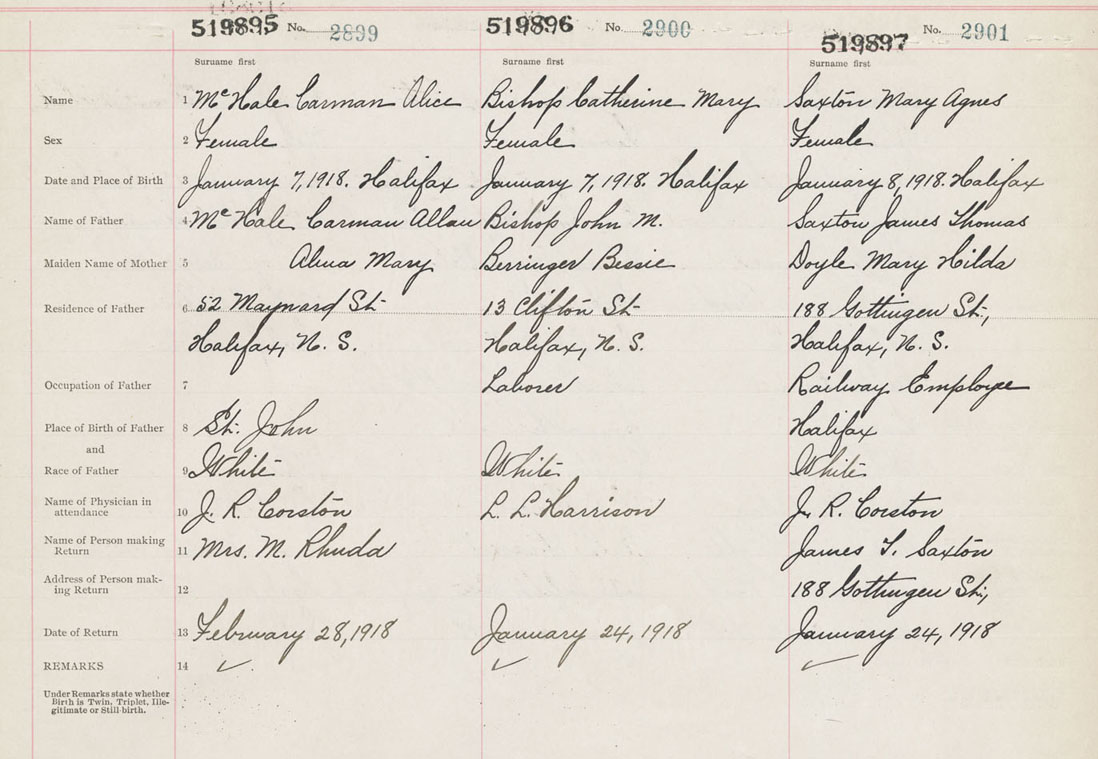 519895 No. 2899 519896 No. 2900 519897 No. 2901
Surname first Surname first Surname first
Name 1 McHale Carman Alice Bishop Catherine Mary Saxton Mary Agnes
Sex 2 Female Female Female
Date and Place of Birth 3 January 7, 1918. Halifax January 7, 1918. Halifax January 8, 1918. Halifax
Name of Father 4 McHale Carman Allan Bishop John M. Saxton James Thomas
Maiden Name of Mother 5 Alma Mary Berringer Bessie Doyle Mary Hilda
Residence of Father 6 52 Maynard St. 13 Clifton St. 188 Gottingen St.,
Halifax, N. S. Halifax, N. S. Halifax, N. S.
Occupation of Father 7 Laborer Railway Employee
Place of Birth of Father 8 St. John Halifax
and
Race of Father 9 White White White
Name of Physician in
attendance 10 J. R. Corston L. L. Harrison J. R. Corston
Name of Person making
Return 11 Mrs. M. Rhuda James T. Saxton
Address of Person mak-
ing Return 12 188 Gottingen St.,
Date of Return 13 February 28, 1918 January 24, 1918 January 24, 1918
REMARKS 14
Under Remarks state whether
Birth is Twin, Triplet, Ille-
gitimate or Still-birth.